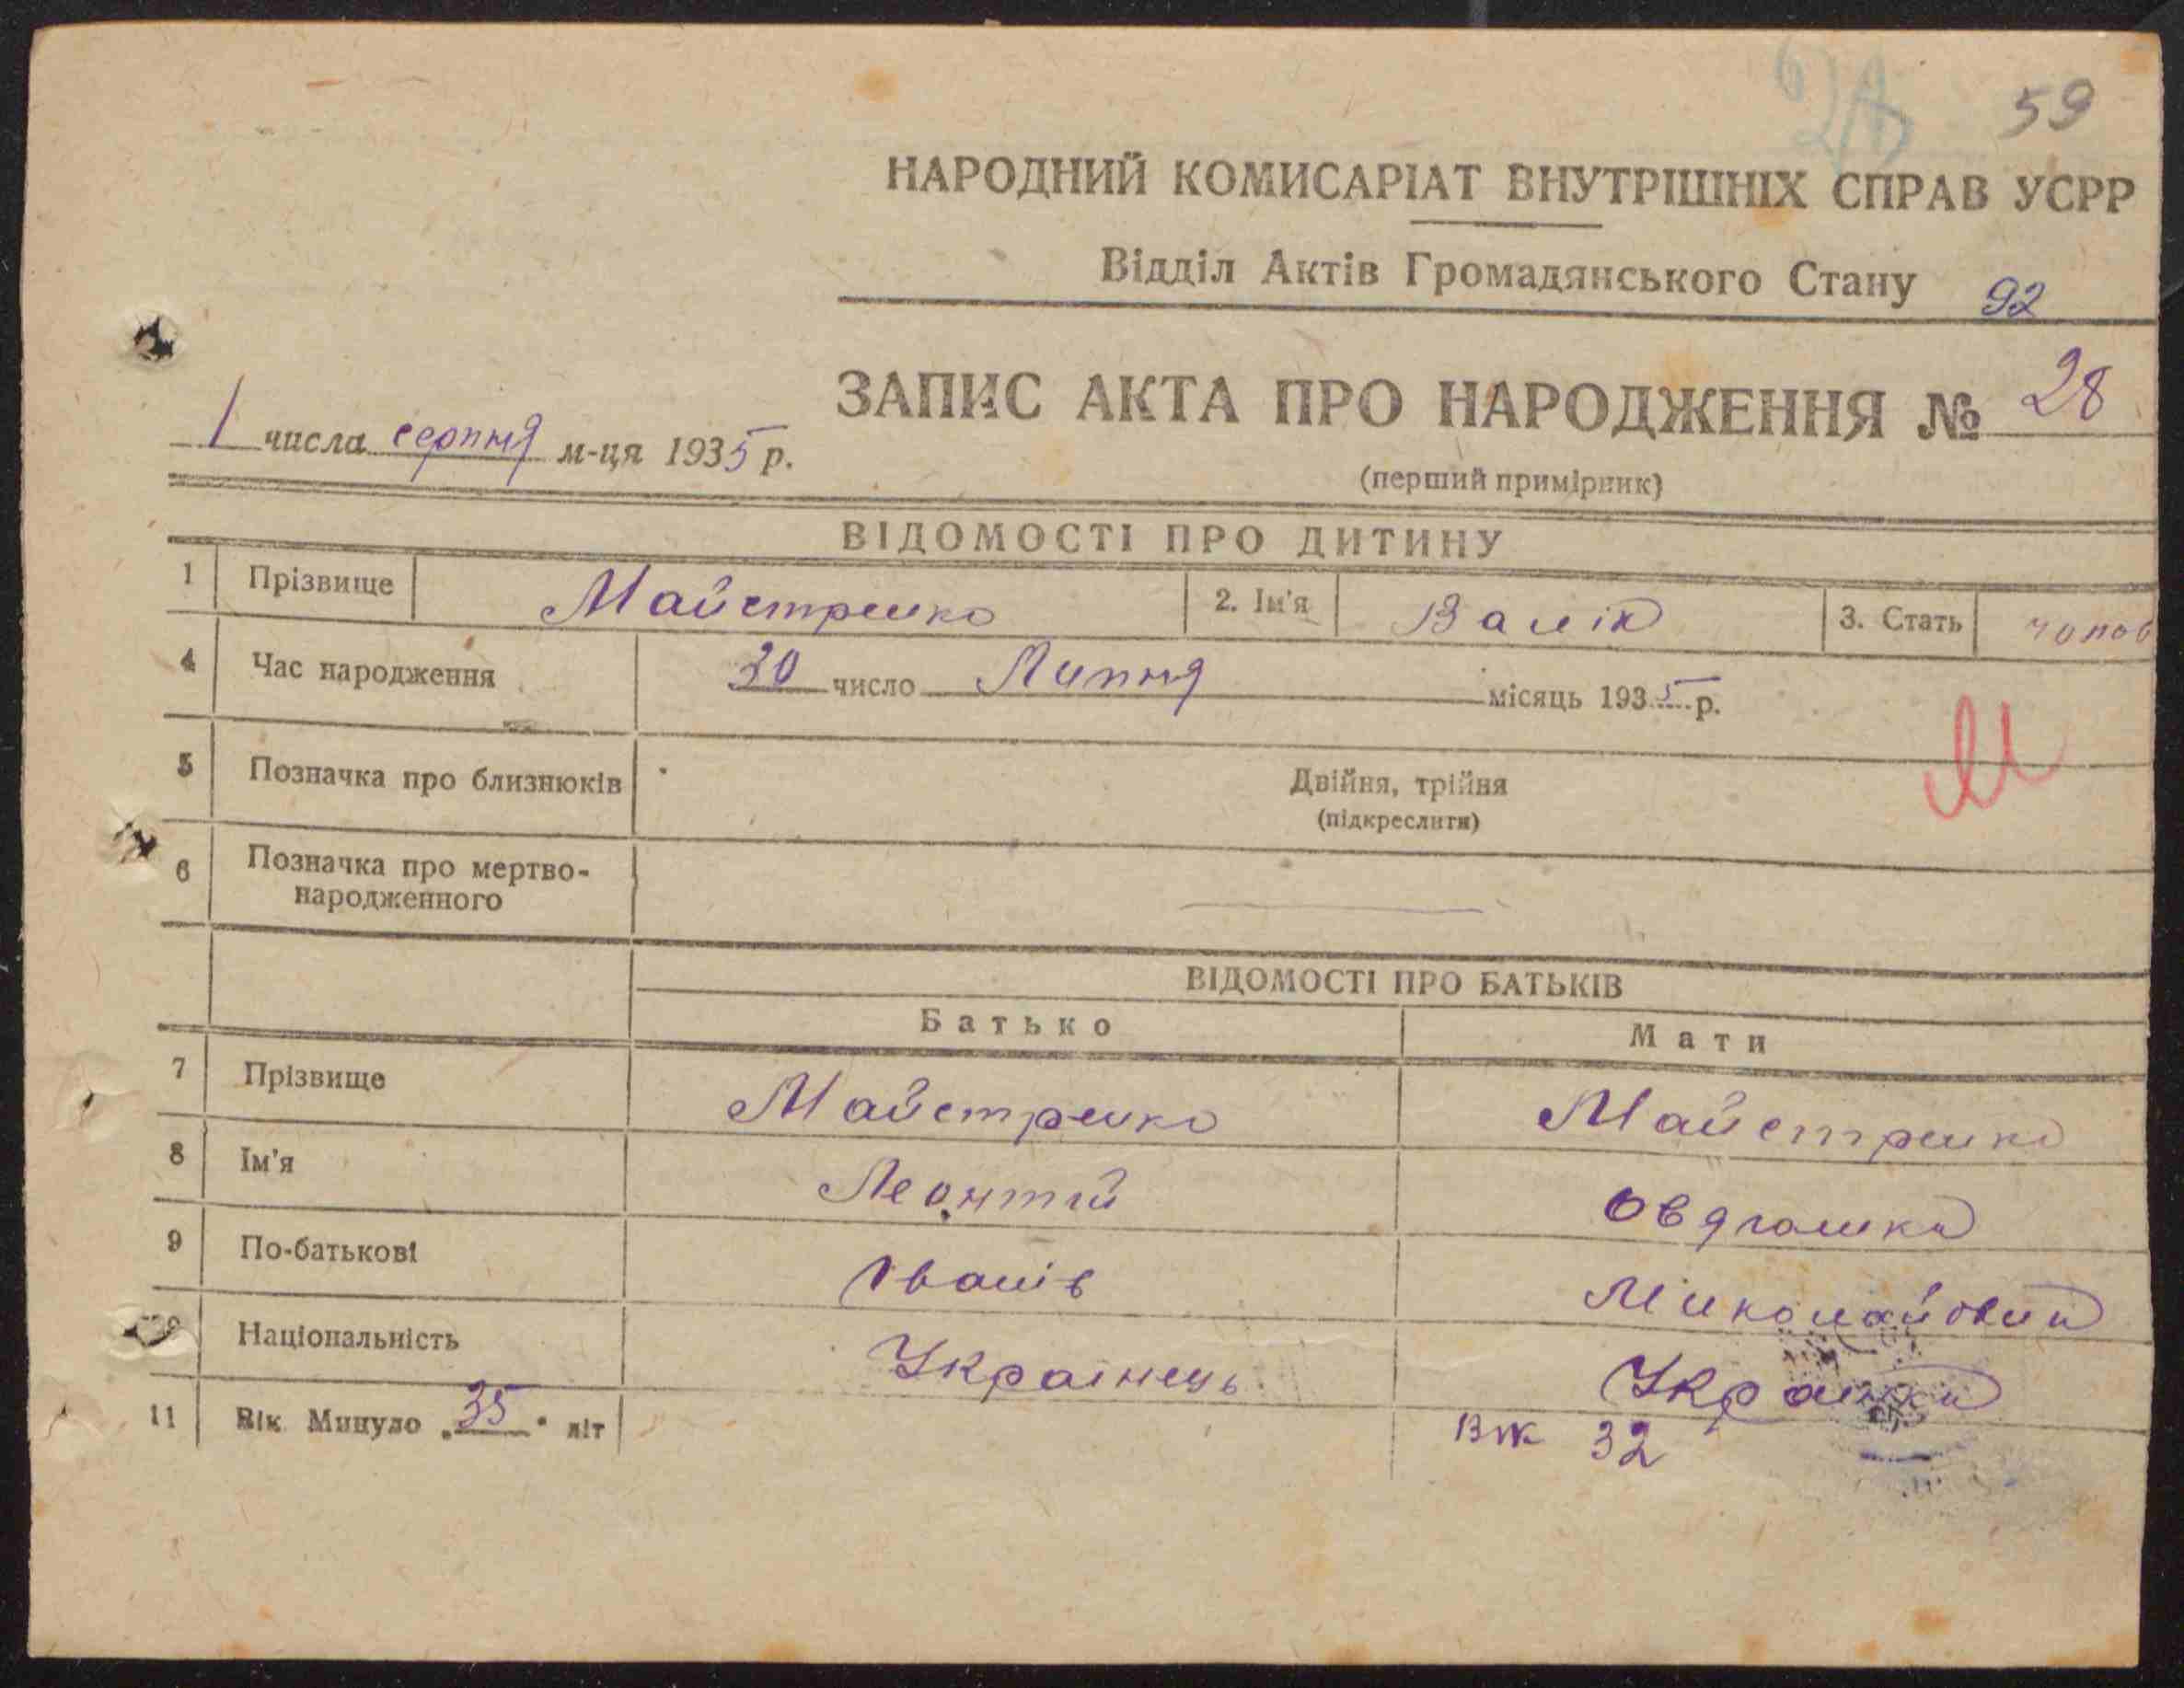 59
НАРОДНИЙ КОМИСАРІАТ ВНУТРІШНІХ СПРАВ УСРР
Відділ Актів Громадянського Стану 92
ЗАПИС АКТА ПРО НАРОДЖЕННЯ № 28
1 числа серпня м-ця 1935 р.
(перший примірник)
ВІДОМОСТІ ПРО ДИТИНУ
1 Прізвище Майстренко 2. Ім'я 3. Стать чолов
4 Час народження 30 число Липня місяць 1935 р.
5 Позначка про близнюків Двійня, трійня
(підкреслити)
М
6 Позначка про мертво-
народженного
ВІДОМОСТІ ПРО БАТЬКІВ
Батько Мати
7 Прізвище Майстренко Майстренко
8 Ім'я Леонтій
9 По-батькові Іванів
10 Національність Українець Українка
11 Вік Минуло „35" літ Вік 32